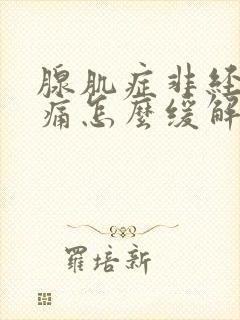 腺肌症非经
痛怎麼缓解
羅培新